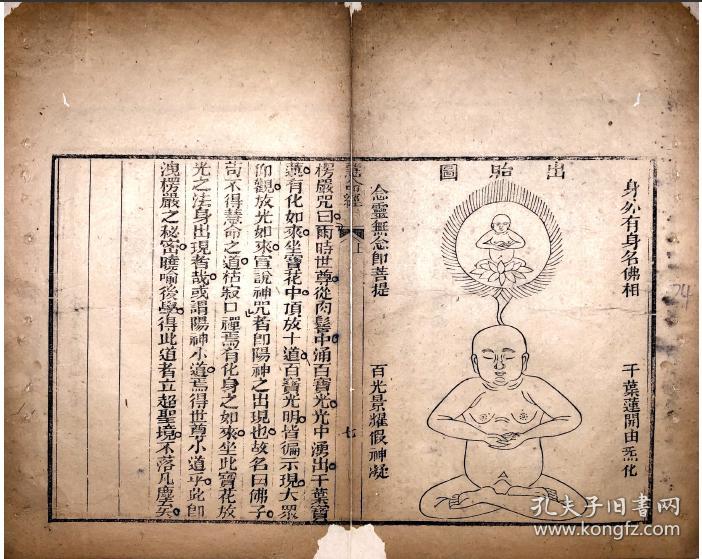 出胎圖
身外有身名佛相
千葉蓮開由炁化
念靈無念即菩提
百光景耀假神凝
慧命經
楞嚴咒曰爾時世尊從肉髻中涌百寶光光中湧出千葉寶
蓮有化如來坐寶花中頂放十道百寶光明皆徧示現大眾
仰觀放光如來宣說神咒者即陽神之出現也故名曰佛子
苟不得慧命之道枯寂口禪焉有化身之如來坐此寶花放
光之法身出現者哉或謂陽神小道焉得世尊小道乎此即
洩楞嚴之秘密曉喻後學得此道者立超聖境不落凡塵矣
24
孔夫子旧书网
www.kongfz.com